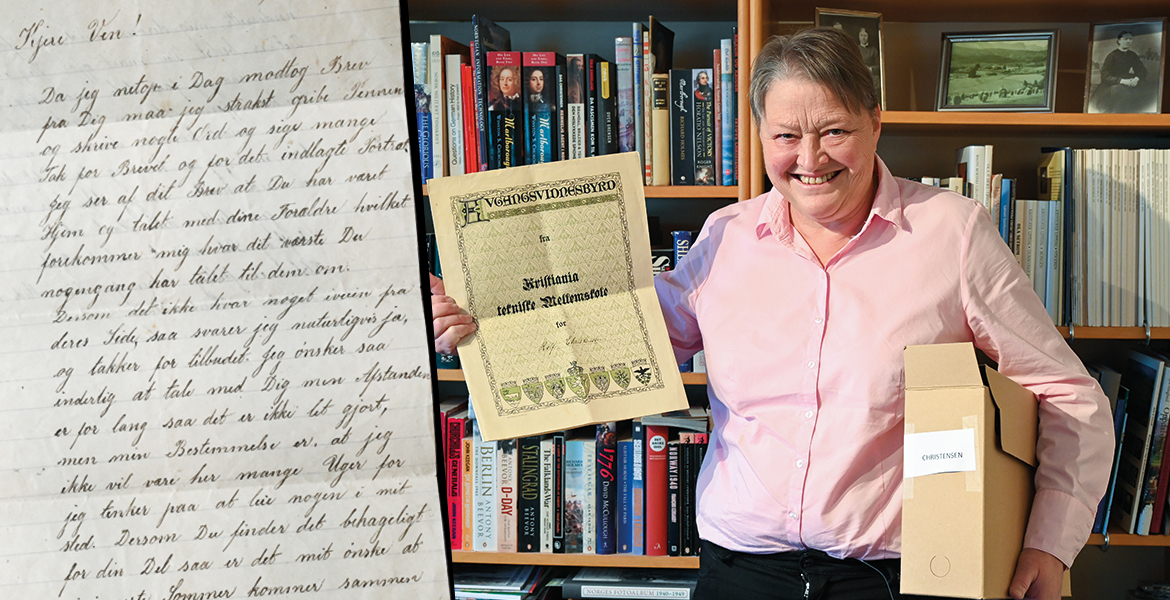 Kjere Ven!
Da jeg netop i Dag modtog Brev
fra Dig maa jeg strakst gribe Pennen
og skrive nogle Ord og sige mange
Tak for Brevet og for det indlagte Portræt
Jeg ser af dit Brev at Du har været
Hjem og talet med dine Foraldre hvilket
forekommer mig hvar det værste Du
nogengang har talet til dem om.
Dersom det ikke hvar noget iveien fra
deres Side, saa svarer jeg naturligvis Ja,
og takker for tilbudet. Jeg ønsker saa
inderlig at tale med Dig men Afstanden
er for lang saa det er ikke let gjort,
men min Bestemmelse er, at jeg
ikke vil vare her mange Uger for
jeg tenker paa at leie nogen i mit
sted. Dersom Du finder det behageligt
for din Del saa er det mit ønske at
Sommer kommer sammen
AVGANGSVIDNESBYRD
fra
Kristiania
tekniske Mellemskole
for
CHRISTENSEN
Marlborough
Marlborough
RICHARD HOLMES
HORATIO NELSON
ROGER KNIGHT
THE GENERALS
BERLIN
ANTONY BEEVOR
D-DAY
ANTONY BEEVOR
STALINGRAD
ANTONY BEEVOR
The Falklands War
1776
DAVID McCULLOUGH
NORWAY 1940
NORGES FOTOALBUM 1940-1945